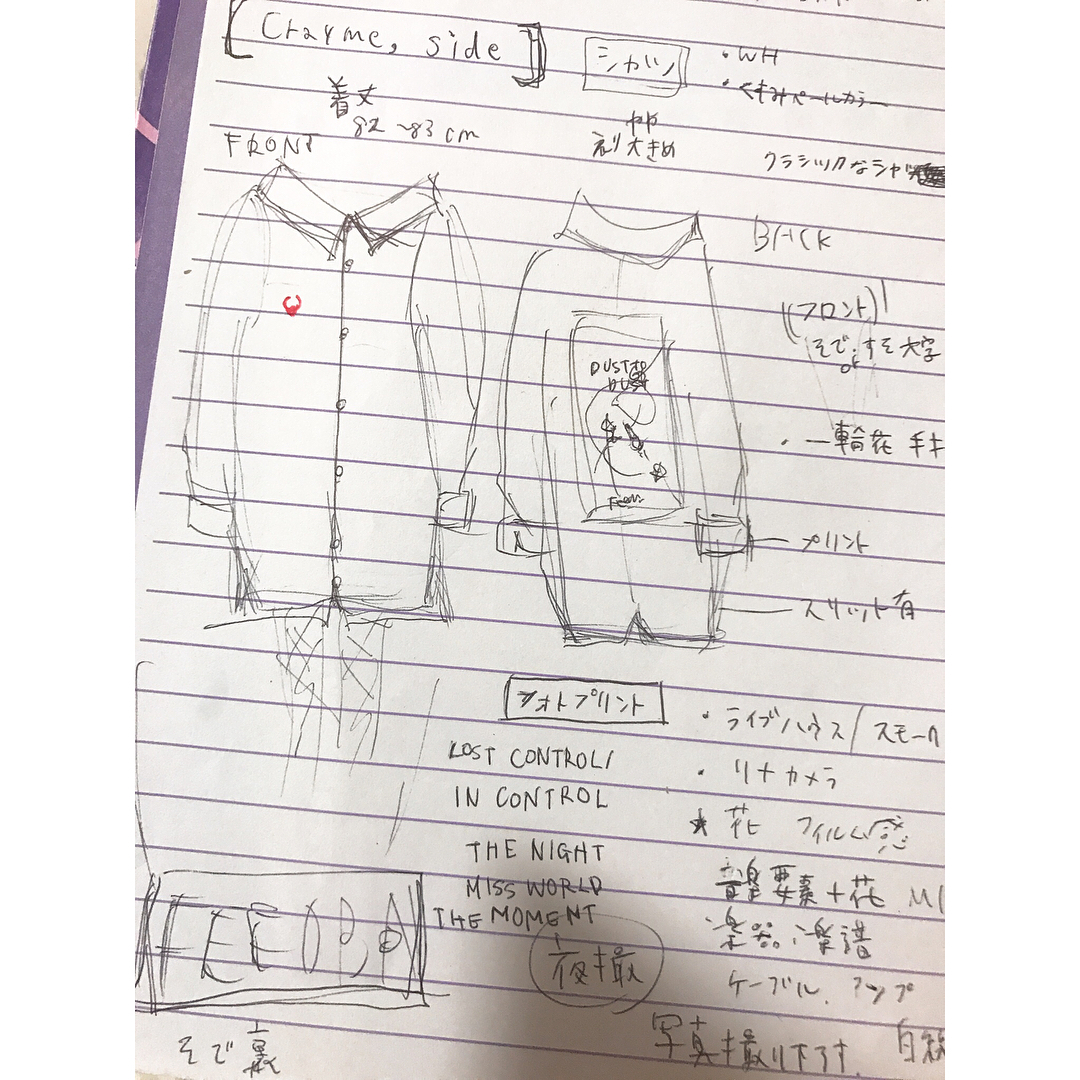 [Crayme, side]
シャツ
・WH
・くすみペールカラー
着丈
82~83cm
やや
衿大きめ
クラシックなシャツ
FRONT
BACK
(フロント)
そで、すそ 文字
or
DUST TO
DUST
・一輪花
プリント
スリット有
フォトプリント
・ライブハウス/スモーク
LOST CONTROL/
・リナカメラ
IN CONTROL
★花 フィルム感
THE NIGHT
音楽要素+花
MISS WORLD
THE MOMENT
楽器、楽譜
夜撮
ケーブル、アップ
そで裏
写真撮り下ろす